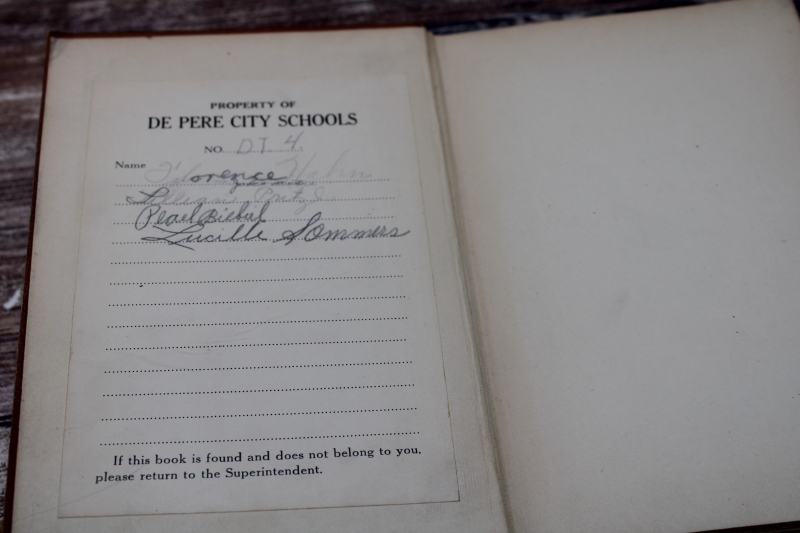 PROPERTY OF
DE PERE CITY SCHOOLS
NO. DT 4.
Name Florence Hahn
Pearl Biebel
Lucille Sommers
If this book is found and does not belong to you,
please return to the Superintendent.